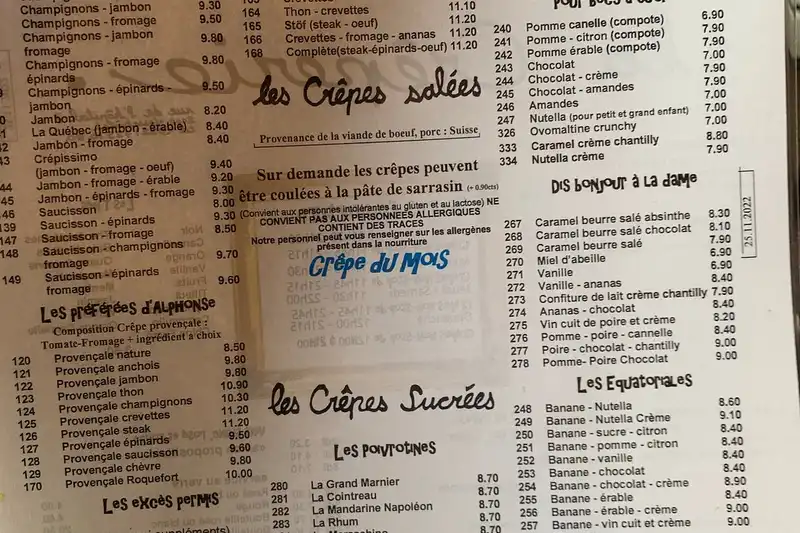 Champignons - jambon 9.30
Champignons - fromage 9.50
Champignons - jambon
fromage 9.80
Champignons - fromage 9.80
épinards
Champignons - épinards - 9.50
jambon
Jambon 8.20
La Québec (jambon - érable) 8.40
Jambon - fromage 8.40
43 Crépissimo
(jambon - fromage - oeuf) 9.40
44 Jambon - fromage - érable 9.20
45 Jambon - épinards - fromage 9.30
46 Saucisson 8.00
139 Saucisson - épinards 9.30
147 Saucisson - fromage 8.50
148 Saucisson - champignons
fromage 9.70
149 Saucisson - épinards
fromage 9.60
Les préférées d'Alphonse
Composition Crêpe provençale :
Tomate-Fromage + ingrédient à choix
120 Provençale nature 8.50
121 Provençale anchois 9.80
122 Provençale jambon 9.80
123 Provençale thon 10.90
124 Provençale champignons 10.30
125 Provençale crevettes 11.20
126 Provençale steak 11.20
127 Provençale épinards 9.50
128 Provençale saucisson 9.60
129 Provençale chèvre 9.80
170 Provençale Roquefort 10.00
Les excès permis
164 Thon - crevettes 11.10
165 Stöf (steak - oeuf) 11.20
166 Crevettes - fromage - ananas 11.20
168 Complète(steak-épinards-oeuf) 11.20
les Crêpes salées
Provenance de la viande de boeuf, porc : Suisse
Sur demande les crêpes peuvent
être coulées à la pâte de sarrasin (+ 0.90cts)
(Convient aux personnes intolérantes au gluten et au lactose) NE
CONVIENT PAS AUX PERSONNEES ALLERGIQUES
CONTIENT DES TRACES
Notre personnel peut vous renseigner sur les allergènes
présent dans la nourriture
Crêpe du Mois
les Crêpes Sucrées
Les Poivrotines
280 La Grand Marnier 8.70
281 La Cointreau 8.70
282 La Mandarine Napoléon 8.70
283 La Rhum 8.70
240 Pomme canelle (compote) 6.90
241 Pomme - citron (compote) 7.90
242 Pomme érable (compote) 7.90
243 Chocolat 7.00
244 Chocolat - crème 7.90
245 Chocolat - amandes 7.90
246 Amandes 7.00
247 Nutella (pour petit et grand enfant) 7.00
326 Ovomaltine crunchy 7.00
333 Caramel crème chantilly 8.80
334 Nutella crème 7.90
Dis bonjour à la dame
25.11.2022
267 Caramel beurre salé absinthe 8.30
268 Caramel beurre salé chocolat 8.10
269 Caramel beurre salé 7.90
270 Miel d'abeille 6.90
271 Vanille 6.90
272 Vanille - ananas 8.40
273 Confiture de lait crème chantilly 7.90
274 Ananas - chocolat 8.40
275 Vin cuit de poire et crème 8.20
276 Pomme - poire - cannelle 8.40
277 Poire - chocolat - chantilly 9.00
278 Pomme- Poire Chocolat 9.00
Les Equatoriales
248 Banane - Nutella 8.60
249 Banane - Nutella Crème 9.10
250 Banane - sucre - citron 8.40
251 Banane - pomme - citron 8.40
252 Banane - vanille 8.40
253 Banane - chocolat 8.40
254 Banane - chocolat - crème 8.90
255 Banane - érable 8.40
256 Banane - érable - crème 9.00
257 Banane - vin cuit et crème 9.00